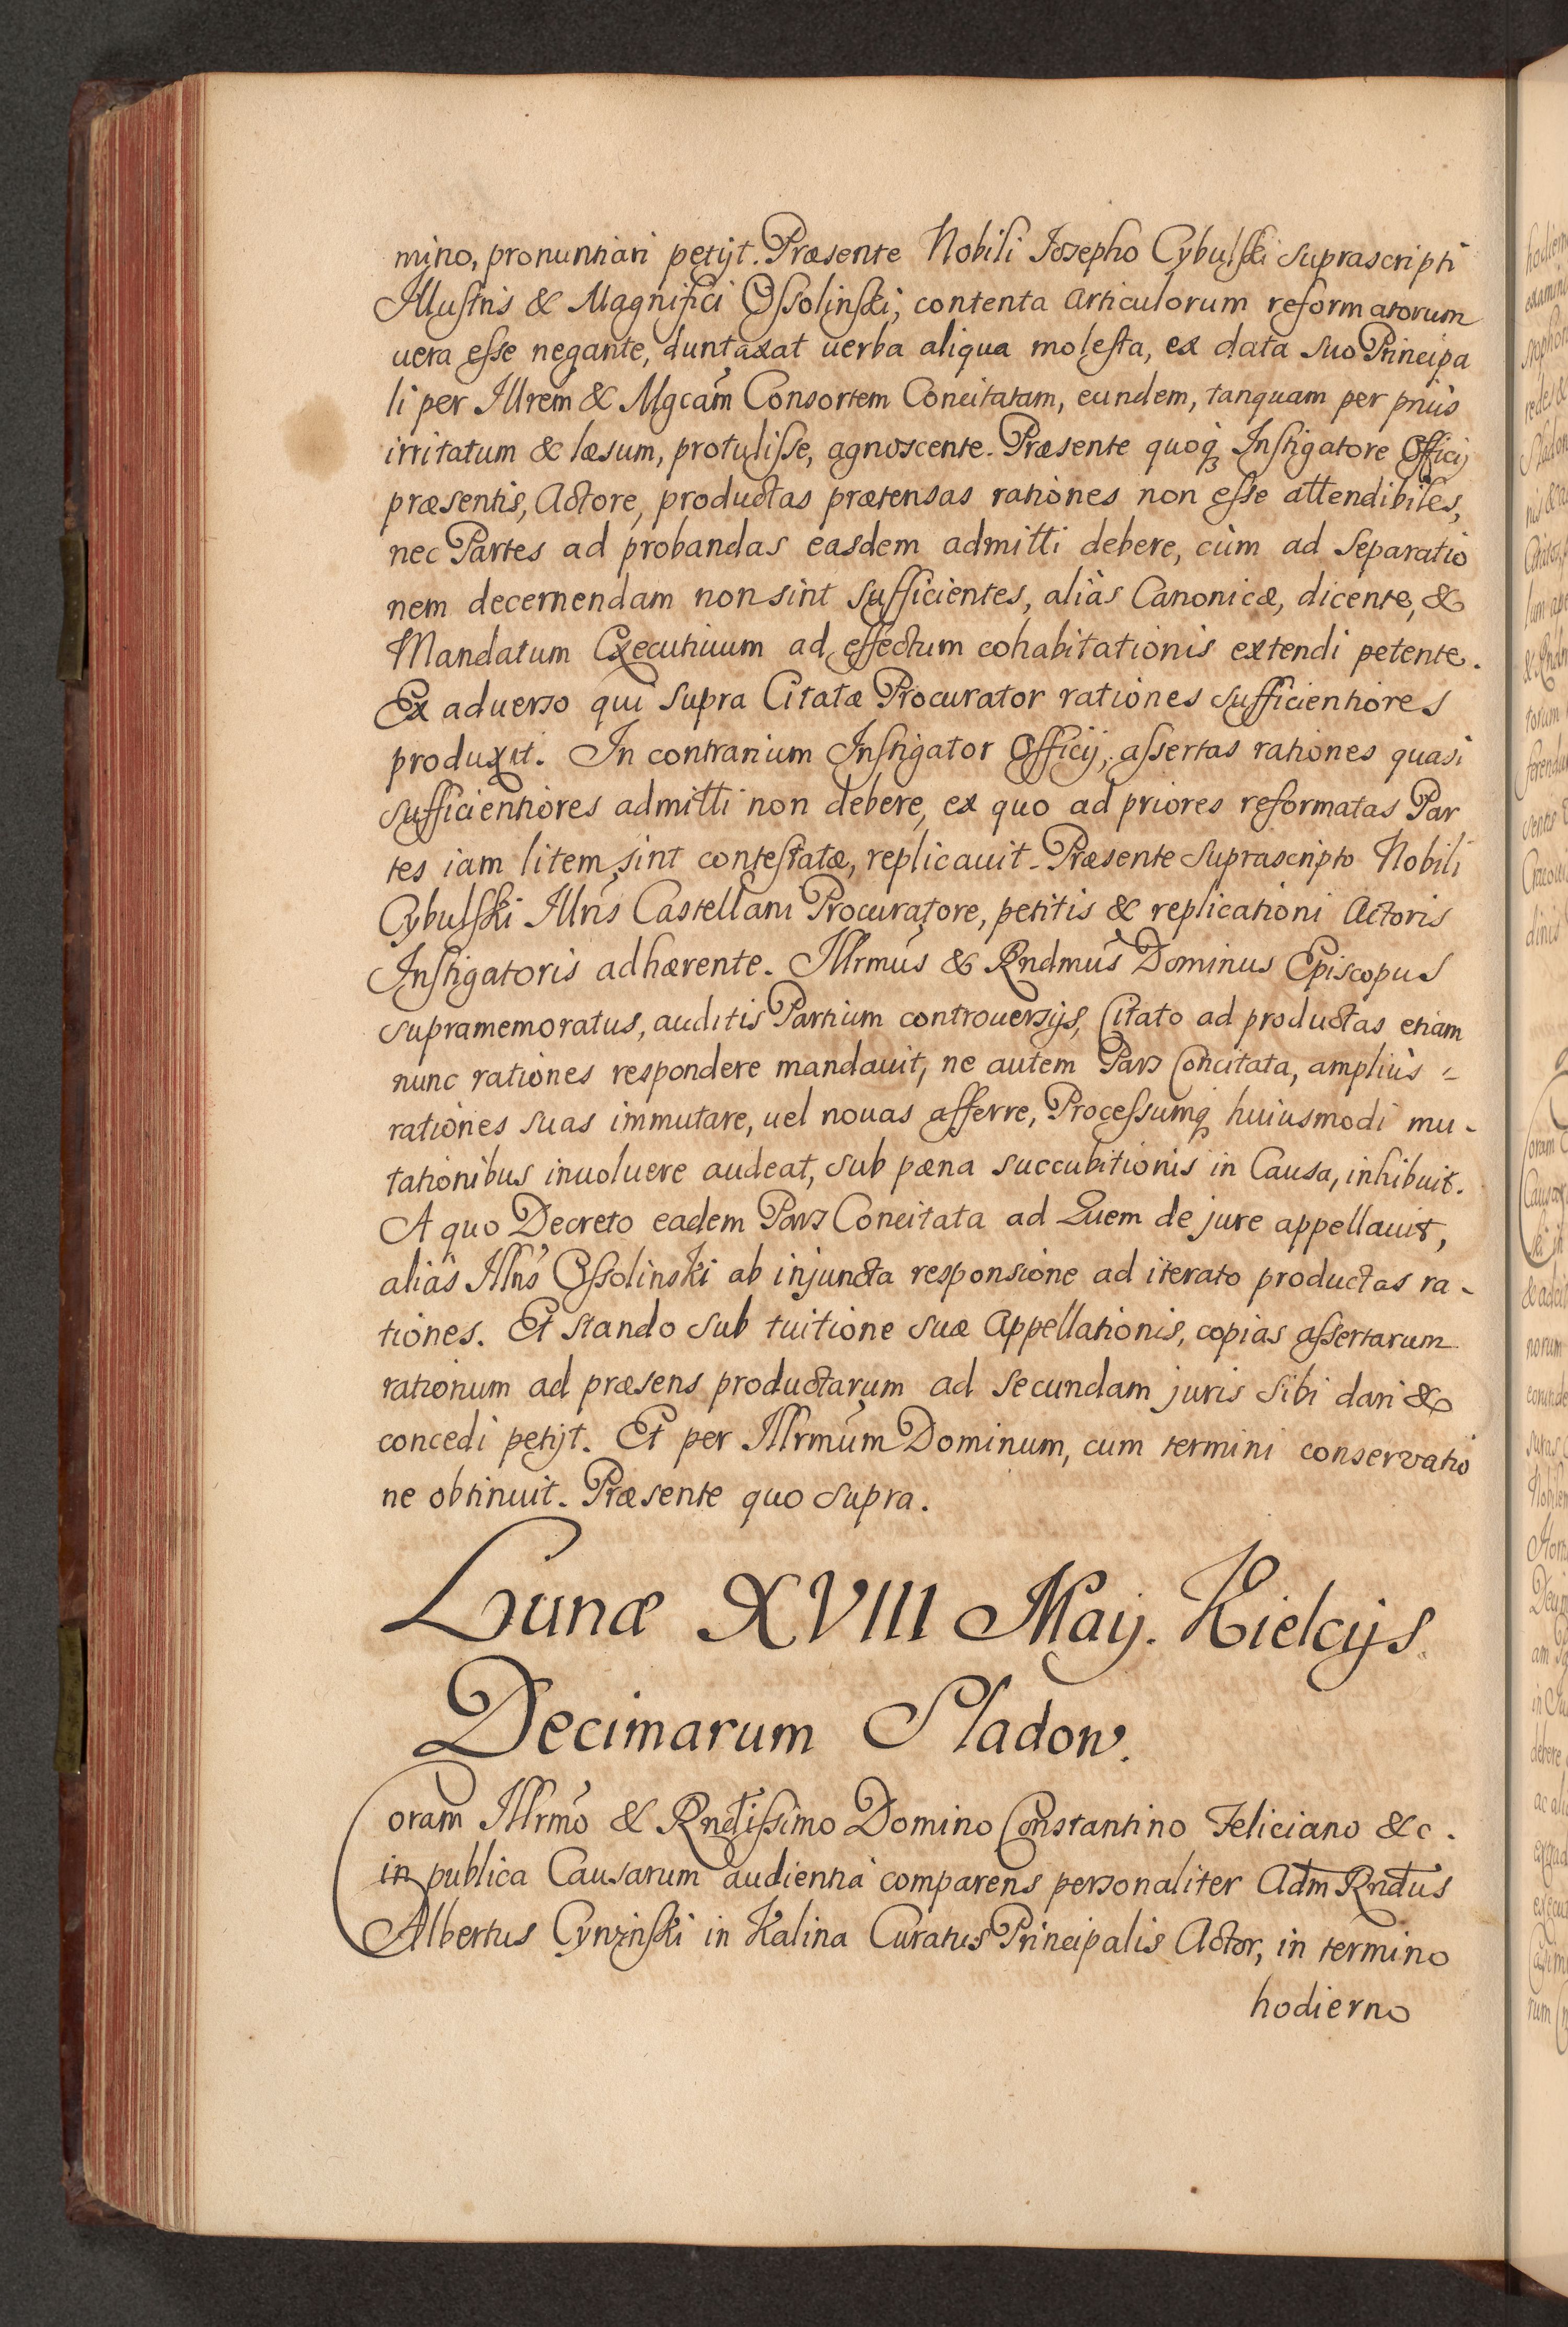 mino, pronuntiari petijt. Præsente Nobili Iosepho Cybulski suprascripti
Illustris & Magnifici Ossolinski, contenta articulorum reformatorum
uera esse negante, duntaxat uerba aliqua molesta, ex data suo Principa
li per Illrem & Mgcam Consortem Concitatam, eundem, tanquam per priùs
irritatum & læsum, protulisse, agnoscente. Præsente quoq; Instigatore Officij
præsentis, Actore, productas prætensas rationes non esse attendibiles,
nec Partes ad probandas easdem admitti debere, cùm ad separatio
nem decernendam non sint sufficientes, aliàs Canonicæ, dicente, &
Mandatum Executiuum ad effectum cohabitationis extendi petente.
Ex aduerso qui supra Citatæ Procurator rationes sufficientiores
produxit. In contrarium Instigator Officij, assertas rationes quasi
sufficientiores admitti non debere, ex quo ad priores reformatas Par
tes iam litem sint contestatæ, replicauit. Præsente suprascripto Nobili
Cybulski Illris Castellani Procuratore, petitis & replicationi Actoris
Instigatoris adhærente. Illrmus & Rndmus Dominus Episcopus
supramemoratus, auditis Partium controuersijs, Citato ad productas etiam
nunc rationes respondere mandauit, ne autem Pars Concitata, ampliùs =
rationes suas immutare, uel nouas afferre, Processumq; huiusmodi mu-
tationibus inuoluere audeat, sub pæna succubitionis in Causa, inhibuit.
A quo Decreto eadem Pars Concitata ad Quem de jure appellauit,
aliàs Illris Ossolinski ab injuncta responsione ad iterato productas ra-
tiones. Et stando sub tuitione suæ Appellationis, copias assertarum
rationum ad præsens productarum ad secundam juris sibi dari &
concedi petijt. Et per Illrmum Dominum, cum termini conservatio
ne obtinuit. Præsente quo supra.
Lunæ XVIII Maij. Kielcijs.
Decimarum Sladow.
Coram Illrmo & Rndissimo Domino Constantino Feliciano &c.
in publica Causarum audientia comparens personaliter Adm Rndus
Albertus Cynzinski in Kalina Curatus Principalis Actor, in termino
hodierno